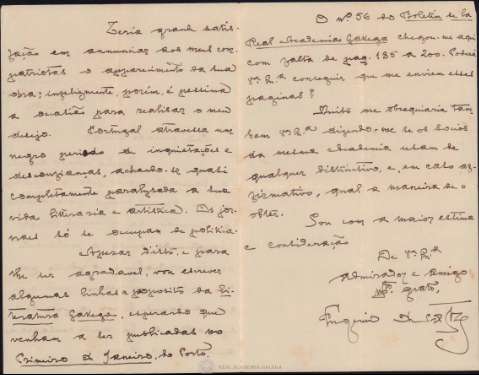 Teria grande satis-
fação em annunciar aos meus com-
patriotas o apparecimento da sua
obra; infelizmente, porém, é pessima
a occasião para realisar o meu
desejo. Portugal atravessa um
negro periodo de inquietações e
desconfianças, achando-se quasi
completamente paralysada a sua
vida litteraria e artistica. Os jor-
naes só se occupam de politica.
Apesar d'isto, e para
lhe ser agradavel, vou escrever
algumas linhas a proposito da Lit-
teratura Gallega, esperando que
venham a ser publicadas no
Primeiro de Janeiro, do Porto.
O nº 56 do Boletin de la
Real Academia Gallega chegou-me aqui
com falta de pag. 185 a 200. Poderá
V. Exª conseguir que me enviem essas
paginas?
Muito me obsequiaria tam-
bem V. Exª dizendo-me se os socios
da mesma Academia usam de
qualquer distinctivo, e, em caso af-
firmativo, qual a maneira de o
obter.
Sou com a maior estima
e consideração
De V. Exª
Admirador e Amigo
mtº grato,